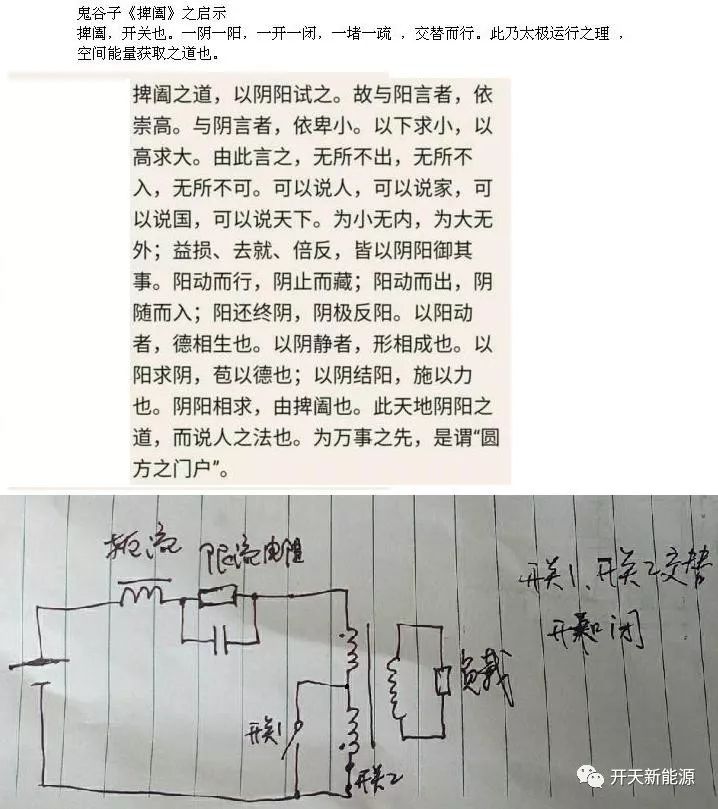 鬼谷子《捭阖》之启示
捭阖，开关也。一阴一阳，一开一闭，一堵一疏 ，交替而行。此乃太极运行之理 ，
空间能量获取之道也。
捭阖之道，以阴阳试之。故与阳言者，依
崇高。与阴言者，依卑小。以下求小，以
高求大。由此言之，无所不出，无所不
入，无所不可。可以说人，可以说家，可
以说国，可以说天下。为小无内，为大无
外；益损、去就、倍反，皆以阴阳御其
事。阳动而行，阴止而藏；阳动而出，阴
随而入；阳还终阴，阴极反阳。以阳动
者，德相生也。以阴静者，形相成也。以
阳求阴，苞以德也；以阴结阳，施以力
也。阴阳相求，由捭阖也。此天地阴阳之
道，而说人之法也。为万事之先，是谓“圆
方之门户”。
扼流
限流电阻
开关1、开关2交替
开和闭
负载
开关1
开关2
开天新能源